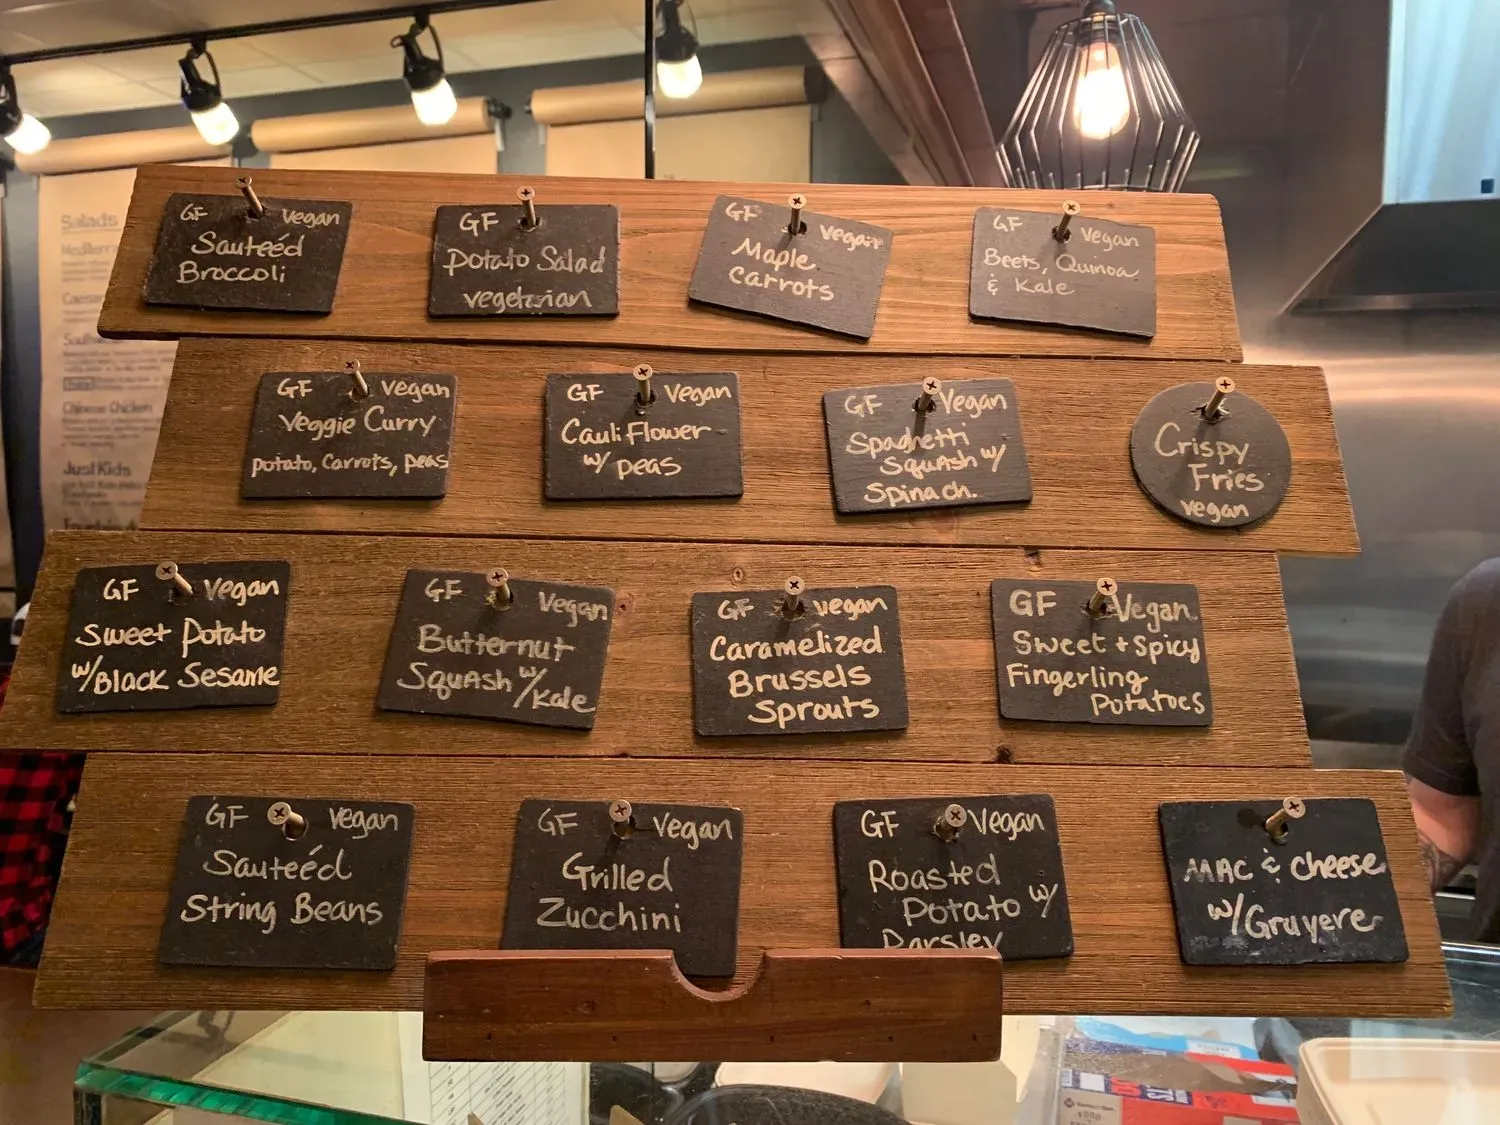 GF Vegan
Sauteéd
Broccoli
GF
Potato Salad
vegetarian
GF vegan
Maple
carrots
GF Vegan
Beets, Quinoa
& Kale
GF Vegan
Veggie Curry
potato, Carrots, peas
GF Vegan
Cauliflower
w/ peas
GF Vegan
Spaghetti
Squash w/
Spinach.
Crispy
Fries
vegan
GF Vegan
Sweet Potato
w/Black Sesame
GF Vegan
Butternut
Squash w/Kale
GF vegan
Caramelized
Brussels
Sprouts
GF Vegan
Sweet + Spicy
Fingerling
Potatoes
GF Vegan
Sauteéd
String Beans
GF Vegan
Grilled
Zucchini
GF Vegan
Roasted
Potato w/
Parsley
MAC & Cheese
w/Gruyere
Salads
Chinese Chicken
Just Kids